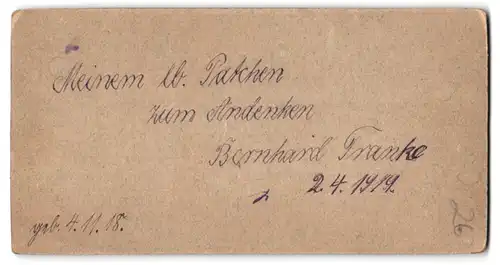 Meinem lb. Patchen
zum Andenken
Bernhard Franke
2.4.1919.
geb. 4.11.18.
26